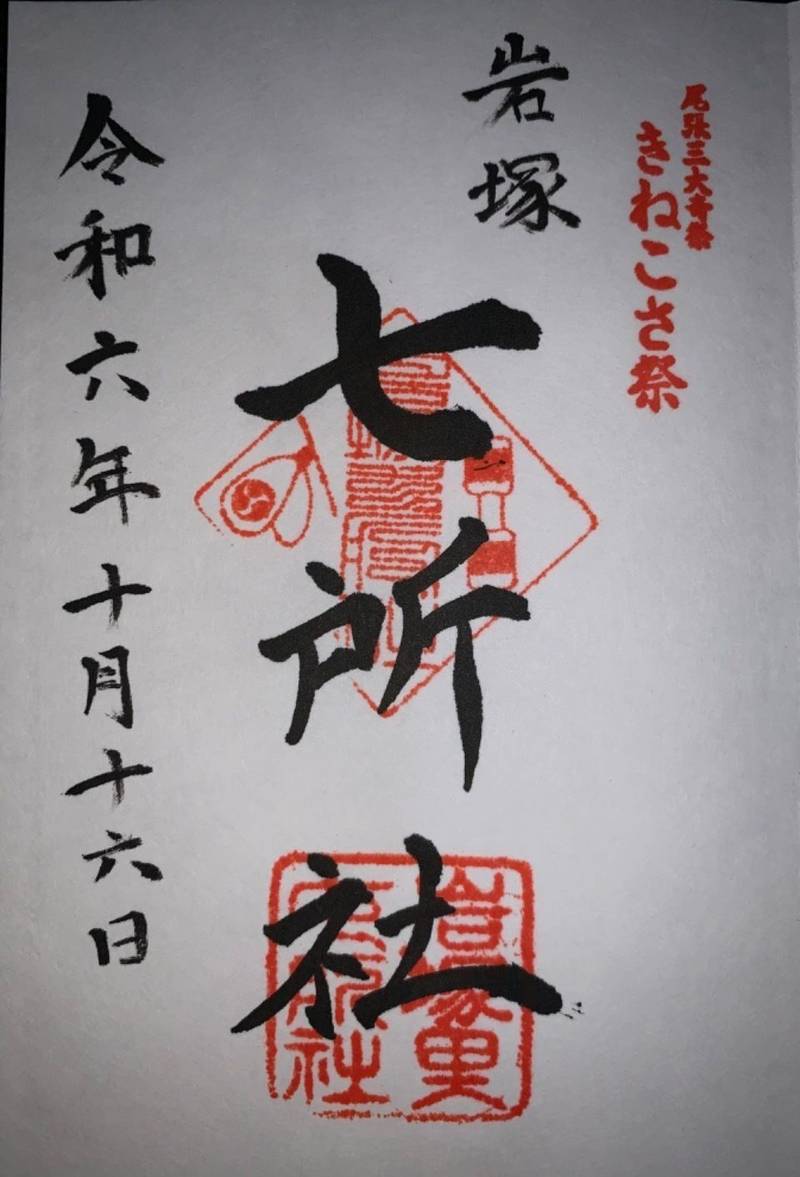 尾張三大奇祭
きねこさ祭
岩塚
七所社
令和六年十月十六日
岩塚里
七所社